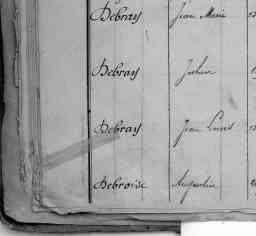 Debray Jean Marie
Debray Julien
Debray Jean Louis
Debroise Augustin